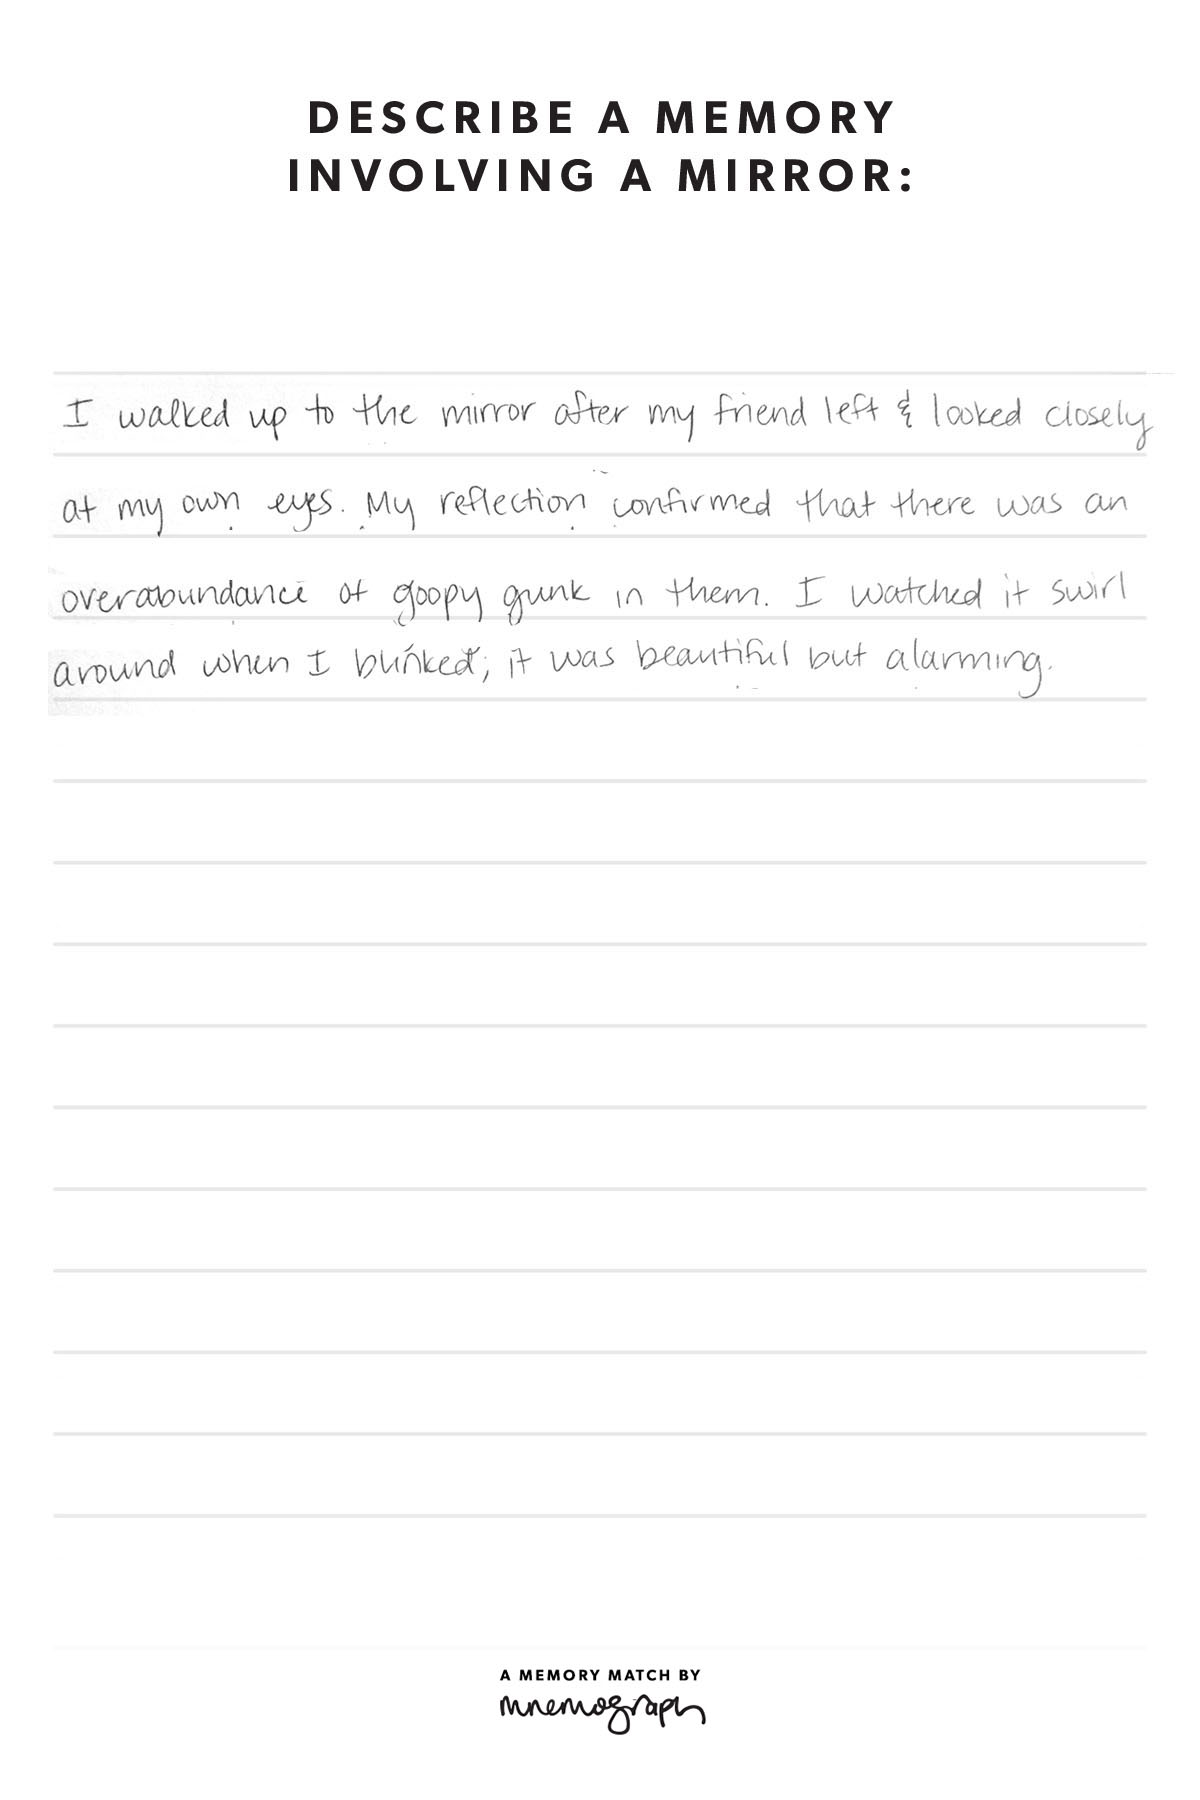 DESCRIBE A MEMORY
INVOLVING A MIRROR:
I walked up to the mirror after my friend left & looked closely
at my own eyes. My reflection confirmed that there was an
overabundance of goopy gunk in them. I watched it swirl
around when I blinked; it was beautiful but alarming.
A MEMORY MATCH BY
mnemograph